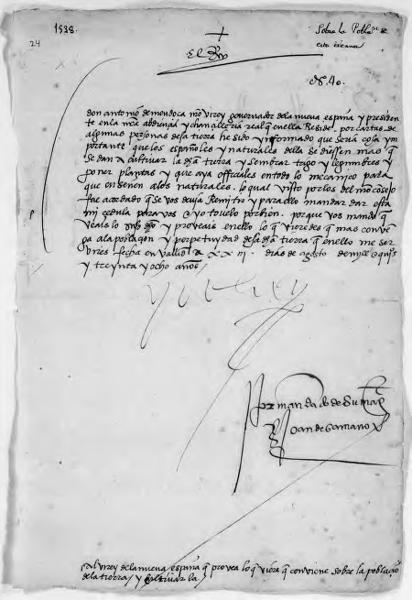 1538.
24
Sobre la Pobla
El Rey
don antonio de mendoça nro virrey governador de la nueva españa y presiden
te en la nra abdiençia y chançelleria real que en ella Reside. por cartas de
algunas personas desa tierra he sido ynformado que seria cosa yn
portante que los españoles y naturales della se diessen mas que
se dan a cultivar la dha tierra y sembrar trigo y legumbres y
poner plantas y que aya officiales en todo lo mecanico para
que enseñen a los naturales. lo qual visto por los del nro consejo
fue acordado que se vos devia Remitir y para ello mandar dar esta
mi çedula para vos E yo tovelo por bien. porque vos mando que
veais lo suso dho y proveais en ello lo que vieredes que mas conve
ga a la poblaçion y perpetuydad de la dha tierra que en ello me ser
vireis fecha en Vallid a XXIII dias de agosto de mill e quis
y treynta y ocho años
yo el rey
Por mandado de su mag
Joan de Samano
al virrey de la nueva españa que provea lo que viere que conviene sobre la poblaçion
de la tierra y cultivar la